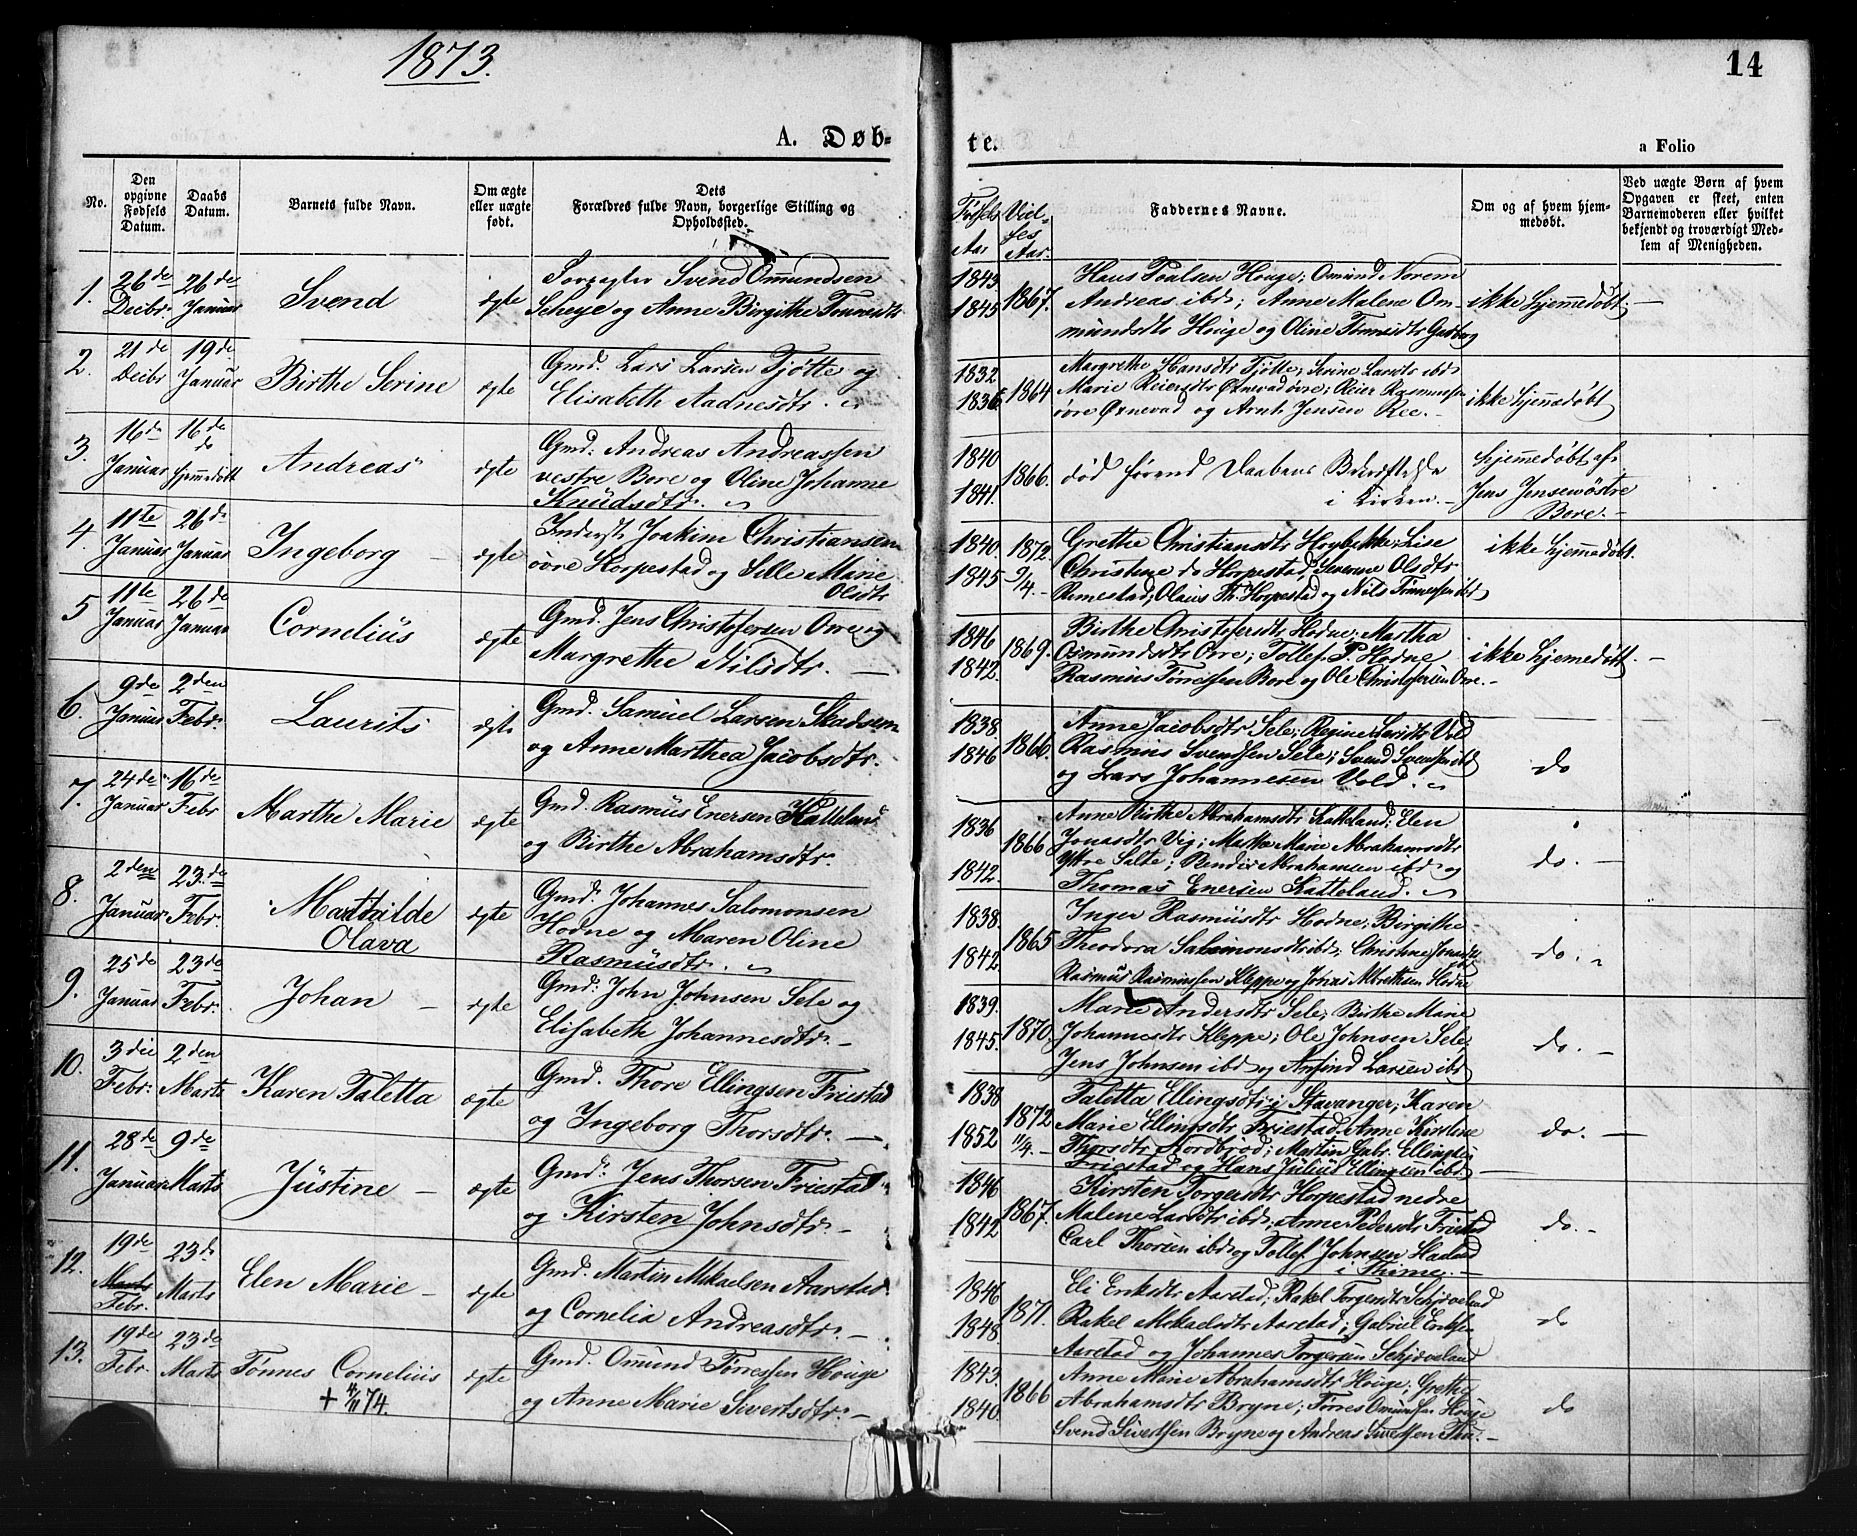 1873.
14
A. Døb-
te.
a Folio
No.
Den opgivne Fødsels Datum.
Daabs Datum.
Barnets fulde Navn.
Om ægte eller uægte født.
Dets Forældres fulde Navn, borgerlige Stilling og Opholdssted.
Fødsels Aar
Viel-ses Aar.
Faddernes Navne.
Om og af hvem hjem-medøbt.
Ved uægte Børn af hvem Opgaven er skeet, enten Barnemoderen eller hvilket bekjendt og troværdigt Med-lem af Menigheden.
1. 26de Decbr. 26de Januar Svend ægte Svend Omundsen
Scheye og Anne Birgithe Tønnesdtr
1843 1845 1867. Hans Poalsen Houge; Omund Norem
Andreas ibd; Anne Malene Om-
mundsdtr Houge og Oline Tønnesdtr
ikke hjemmedøbt. —
2. 21de Decbr 19de Januar Birthe Serine ægte Gmd. Lars Larsen Tjøtte og
Elisabeth Aadnesdtr.
1832 1836 1864 Margrethe Hansdtr Tjøtte; Serine Larsdtr ibd
Marie Reiersdtr Øxnevad øvre; Reier Rasmussen
øvre Øxnevad og Arnt Jensen Ree. -
ikke hjemmedøbt
3. 16de Januar 16de do hjemmedøbt Andreas ægte Gmd. Andreas Andreassen
vestre Bore og Oline Johanne
Knudsdtr.
1840 1841. 1866. død førend Daabens Bekræftelse
i Kirken. -
hjemmedøbt af
Jens Jensen østre
Bore. -
4. 11te Januar 26de Januar Ingeborg — ægte Inderst Joakim Christiansen
øvre Horpestad og Sille Marie
Olsdtr
1840. 1845 1872. 9/4. - Grethe Christiansdtr; Lise
Christine do Horpestad, Severine Olsdtr
Rimestad; Olaus Th. Horpestad og Nils Tønnessen ibd
ikke hjemmedøbt.
5 11te Januar 26de Januar Cornelius ægte Gmd. Jens Christofersen Orre og
Margrethe Nilsdtr. —
1846 1842. 1869. Birthe Christofersdtr Hodne; Martha
Osmundsdtr Orre; Tollef P. Hodne
Rasmus Tørressen Bore og Ole Christofersen Orre. -
ikke hjemmedøbt. —
6. 9de Januar 2den Febr. Laurits ægte Gmd. Samuel Larsen Skadsem
og Anne Marthea Jacobsdtr.
1838. 1846 1866. Anne Jacobsdtr Sele; Regine Larsdtr Vold
Rasmus Svendsen Sele; Svend Svendsen ibd
og Lars Johannesen Vold.
do
7. 24de Januar 16de Febr Marthe Marie ægte Gmd. Rasmus Enersen Hatteland
og Birthe Abrahamsdtr.
1836 1842. 1866 Anne Birthe Abrahamsdtr Hatteland; Elen
Jonasdtr Vig; Marthe Marie Abrahamsdtr
Yttre Salte; Bendix Abrahamsen ibd og
Thomas Enersen Hatteland.
do. —
8. 2den Januar 23de Febr. Mathilde
Olava
ægte Gmd. Johannes Salomonsen
Hodne og Maren Oline
Rasmusdtr.
1838. 1842. 1865 Inger Rasmusdtr Hodne; Birgithe
Theodora Salomonsdtr ibd; Christine Jonasdtr
Rasmus Rasmussen Kleppe og Jonas Hodne
do.
9. 25de Januar 23de Febr. Johan — ægte Gmd. John Johnsen Sele og
Elisabeth Johannesdtr. —
1839. 1845. 1870. Marie Andersdtr Sele; Birthe Marie
Johannesdtr Kleppe; Ole Johnsen Sele
Jens Johnsen ibd og Larsen ibd
do. —
10. 3die Febr. 2den Marts Karen Taletta ægte Gmd. Thore Ellingsen Friestad
og Ingeborg Thorsdtr. —
1838 1852 1872 11/4. - Taletta Ellingsdtr i Stavanger; Karen
Marie Ellingsdtr Friestad. Anne Kirstine
Thorsdtr Nordbrød; Martin Gabr. Ellingsen
Friestad og Hans Julius Ellingsen ibd
do. —
11. 28de Januar 9de Marts Justine — ægte Gmd. Jens Thorsen Friestad
og Kirsten Johnsdtr. -
1846 1842 1867. Kirsten Torgersdtr Horpestad nedre
Malene Larsdtr ibd; Anne Pedersdtr Friestad
Carl Thorsen ibd og Tollef Johnsen Haaland
i Thime. -
do. -
12. 19de Marts Febr. 23de Marts Elen Marie — ægte Gmd. Martin Mikaelsen Aarstad
og Cornelia Andreasdtr. —
1846 1848 1871. Eli Eriksdtr Aarstad; Rakel Torgersdtr Schjæveland
Rakel Mikaelsdtr Aarstad; Gabriel Eriksen
Aarstad og Johannes Torgersen Schjæveland
do
13. 19de Febr. 23de Marts Tønnes Cornelius
+ 4/11 74.
ægte Gmd. Omund Tørressen Houge
og Anne Marie Sivertsdtr. —
1843. 1840. 1866 Anne Marie Abrahamsdtr Houge; Grethe
Abrahamsdtr Bryne; Tørres Omundsen Houge
Svend Sivertsen Bryne og Andreas Sivertsen Thu. -
do